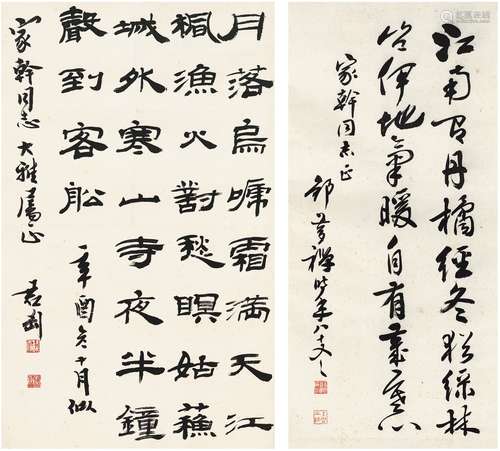 江南有丹橘經冬猶綠林
豈伊地氣暖自有歲寒心
家幹同志正
鄒夢禪時年八十又
月落烏嗁霜滿天江
楓漁火對愁瞑姑蘇
城外寒山寺夜半鐘
聲到客舩
辛酉冬十月似
家幹同志大雅屬正